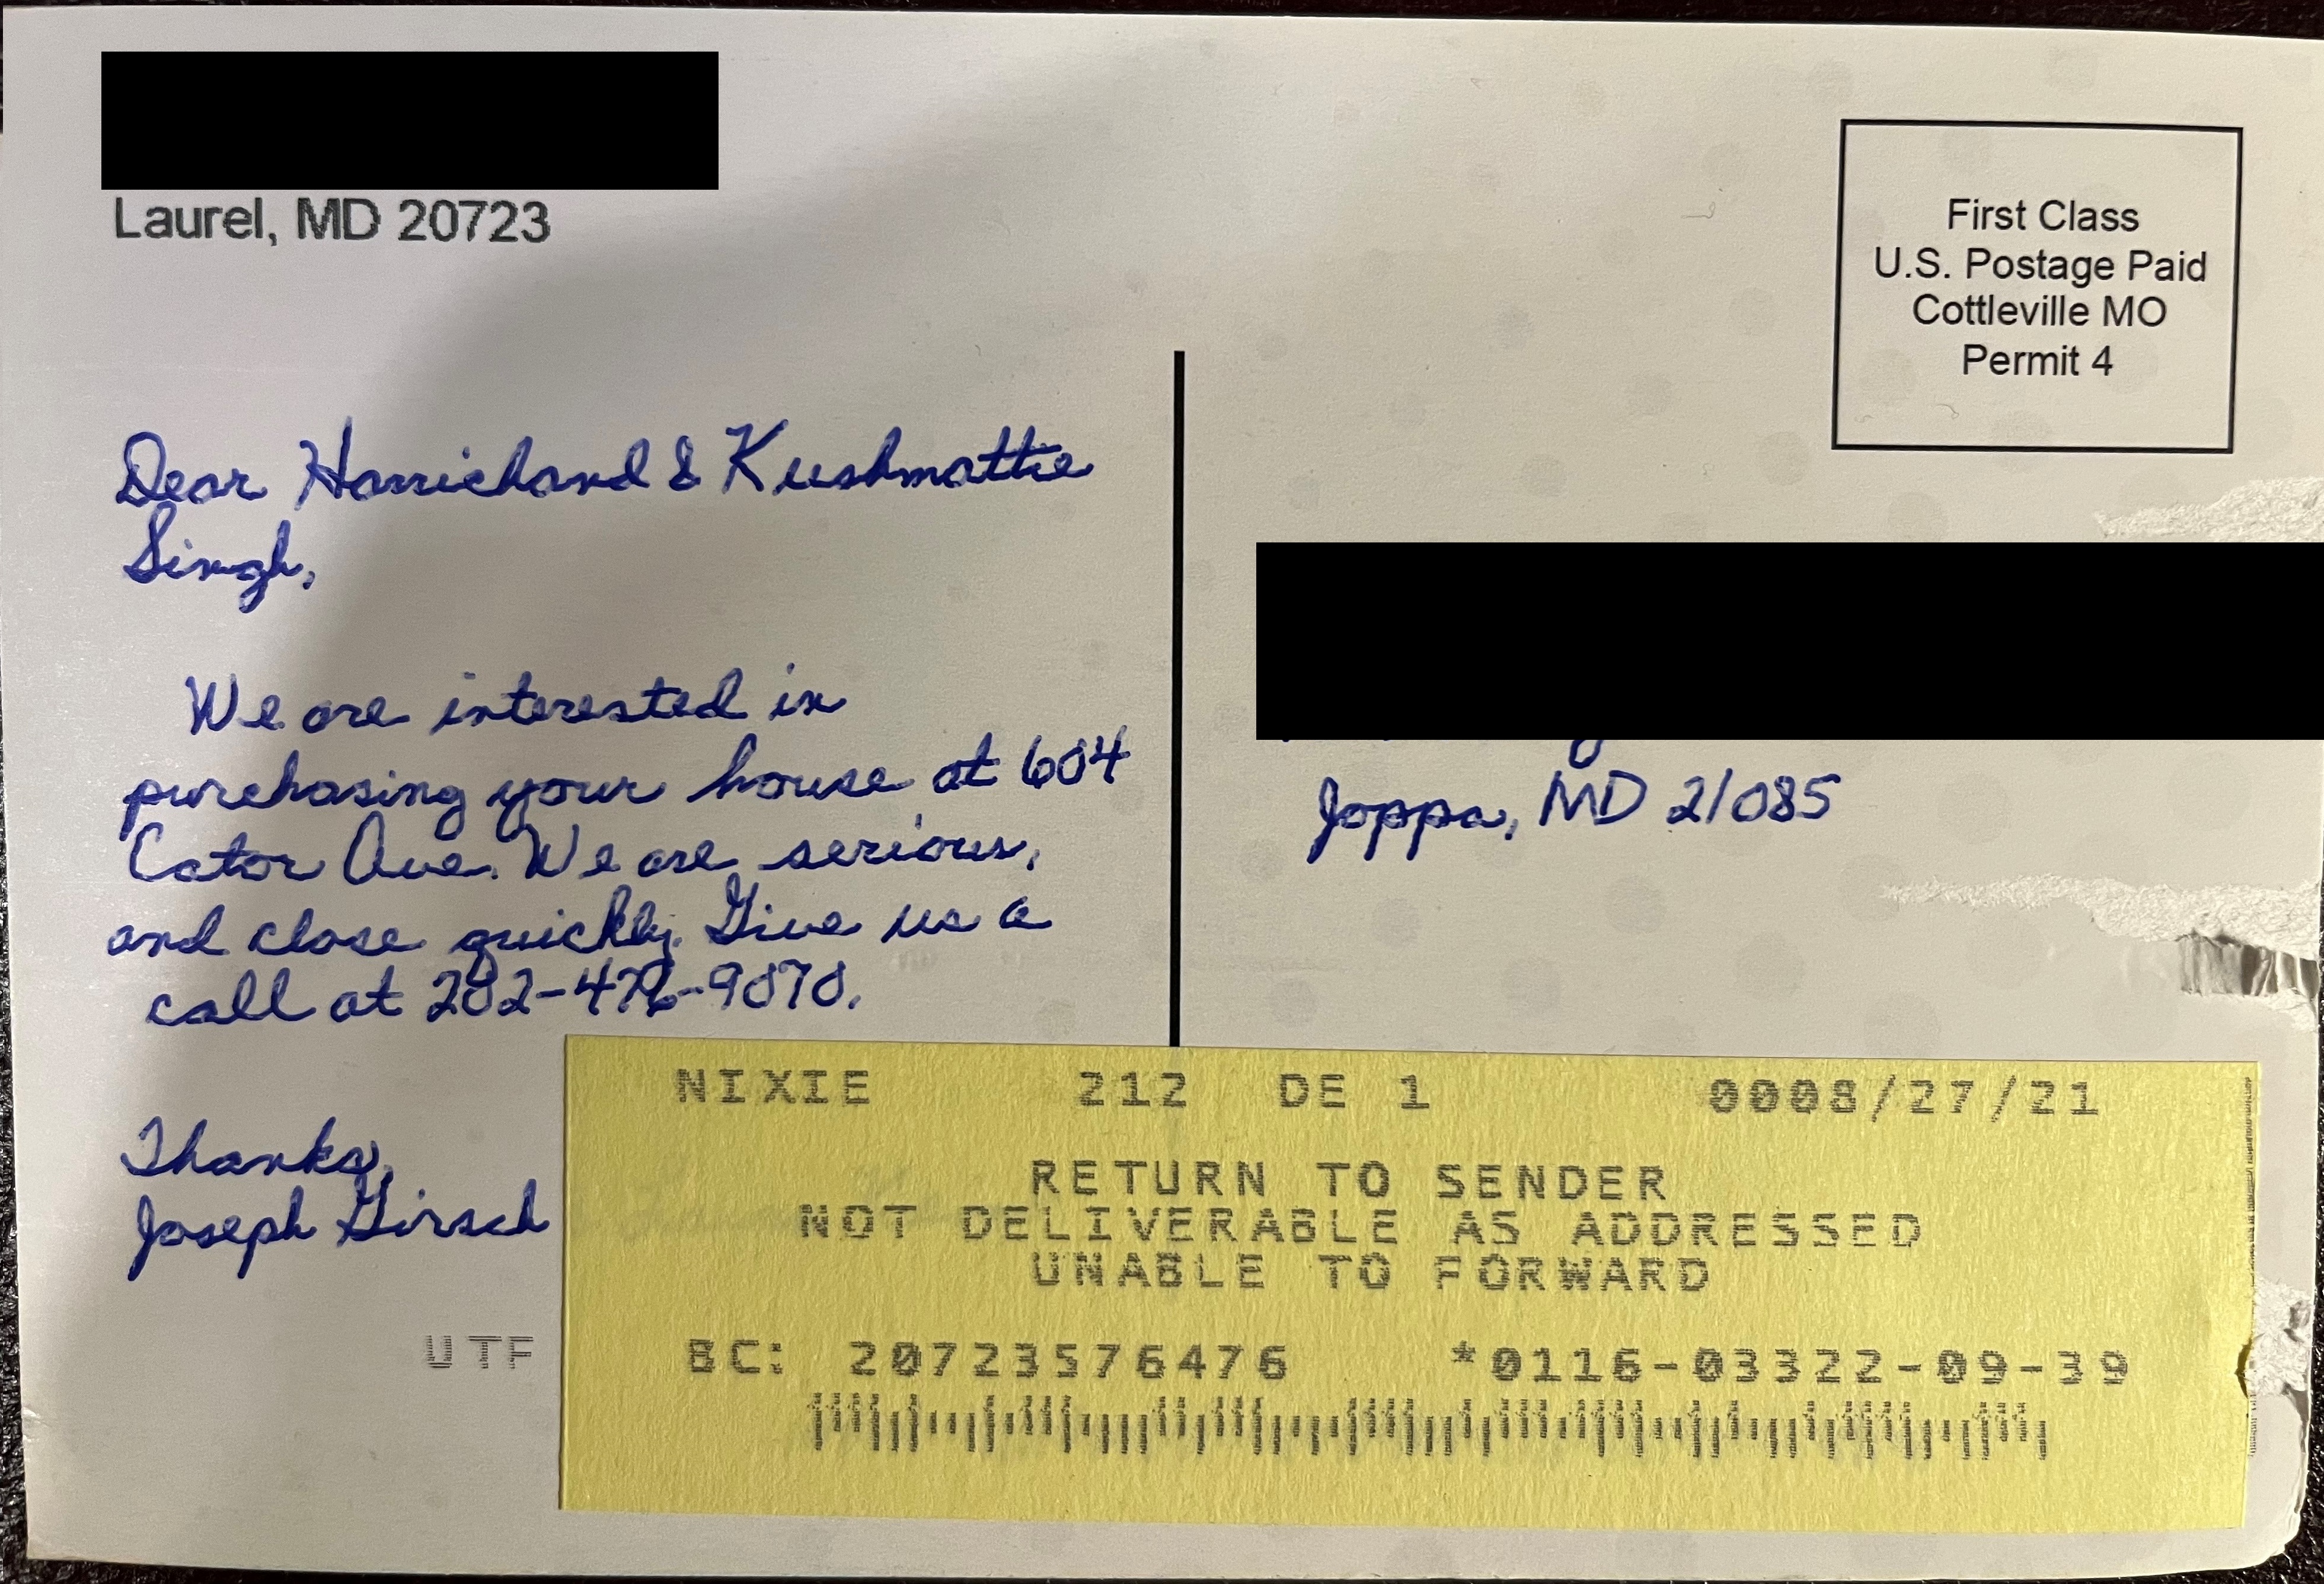 Laurel, MD 20723
First Class
U.S. Postage Paid
Cottleville MO
Permit 4
Dear Harrichand & Kushmattie
Singh,
We are interested in
purchasing your house at 604
Cator Ave. We are serious,
and close quickly. Give us a
call at 202-476-9070.
Thanks,
Joseph Girsch
Joppa, MD 21085
NIXIE 212 DE 1 0008/27/21
RETURN TO SENDER
NOT DELIVERABLE AS ADDRESSED
UNABLE TO FORWARD
UTF
BC: 20723576476 *0116-03322-09-39